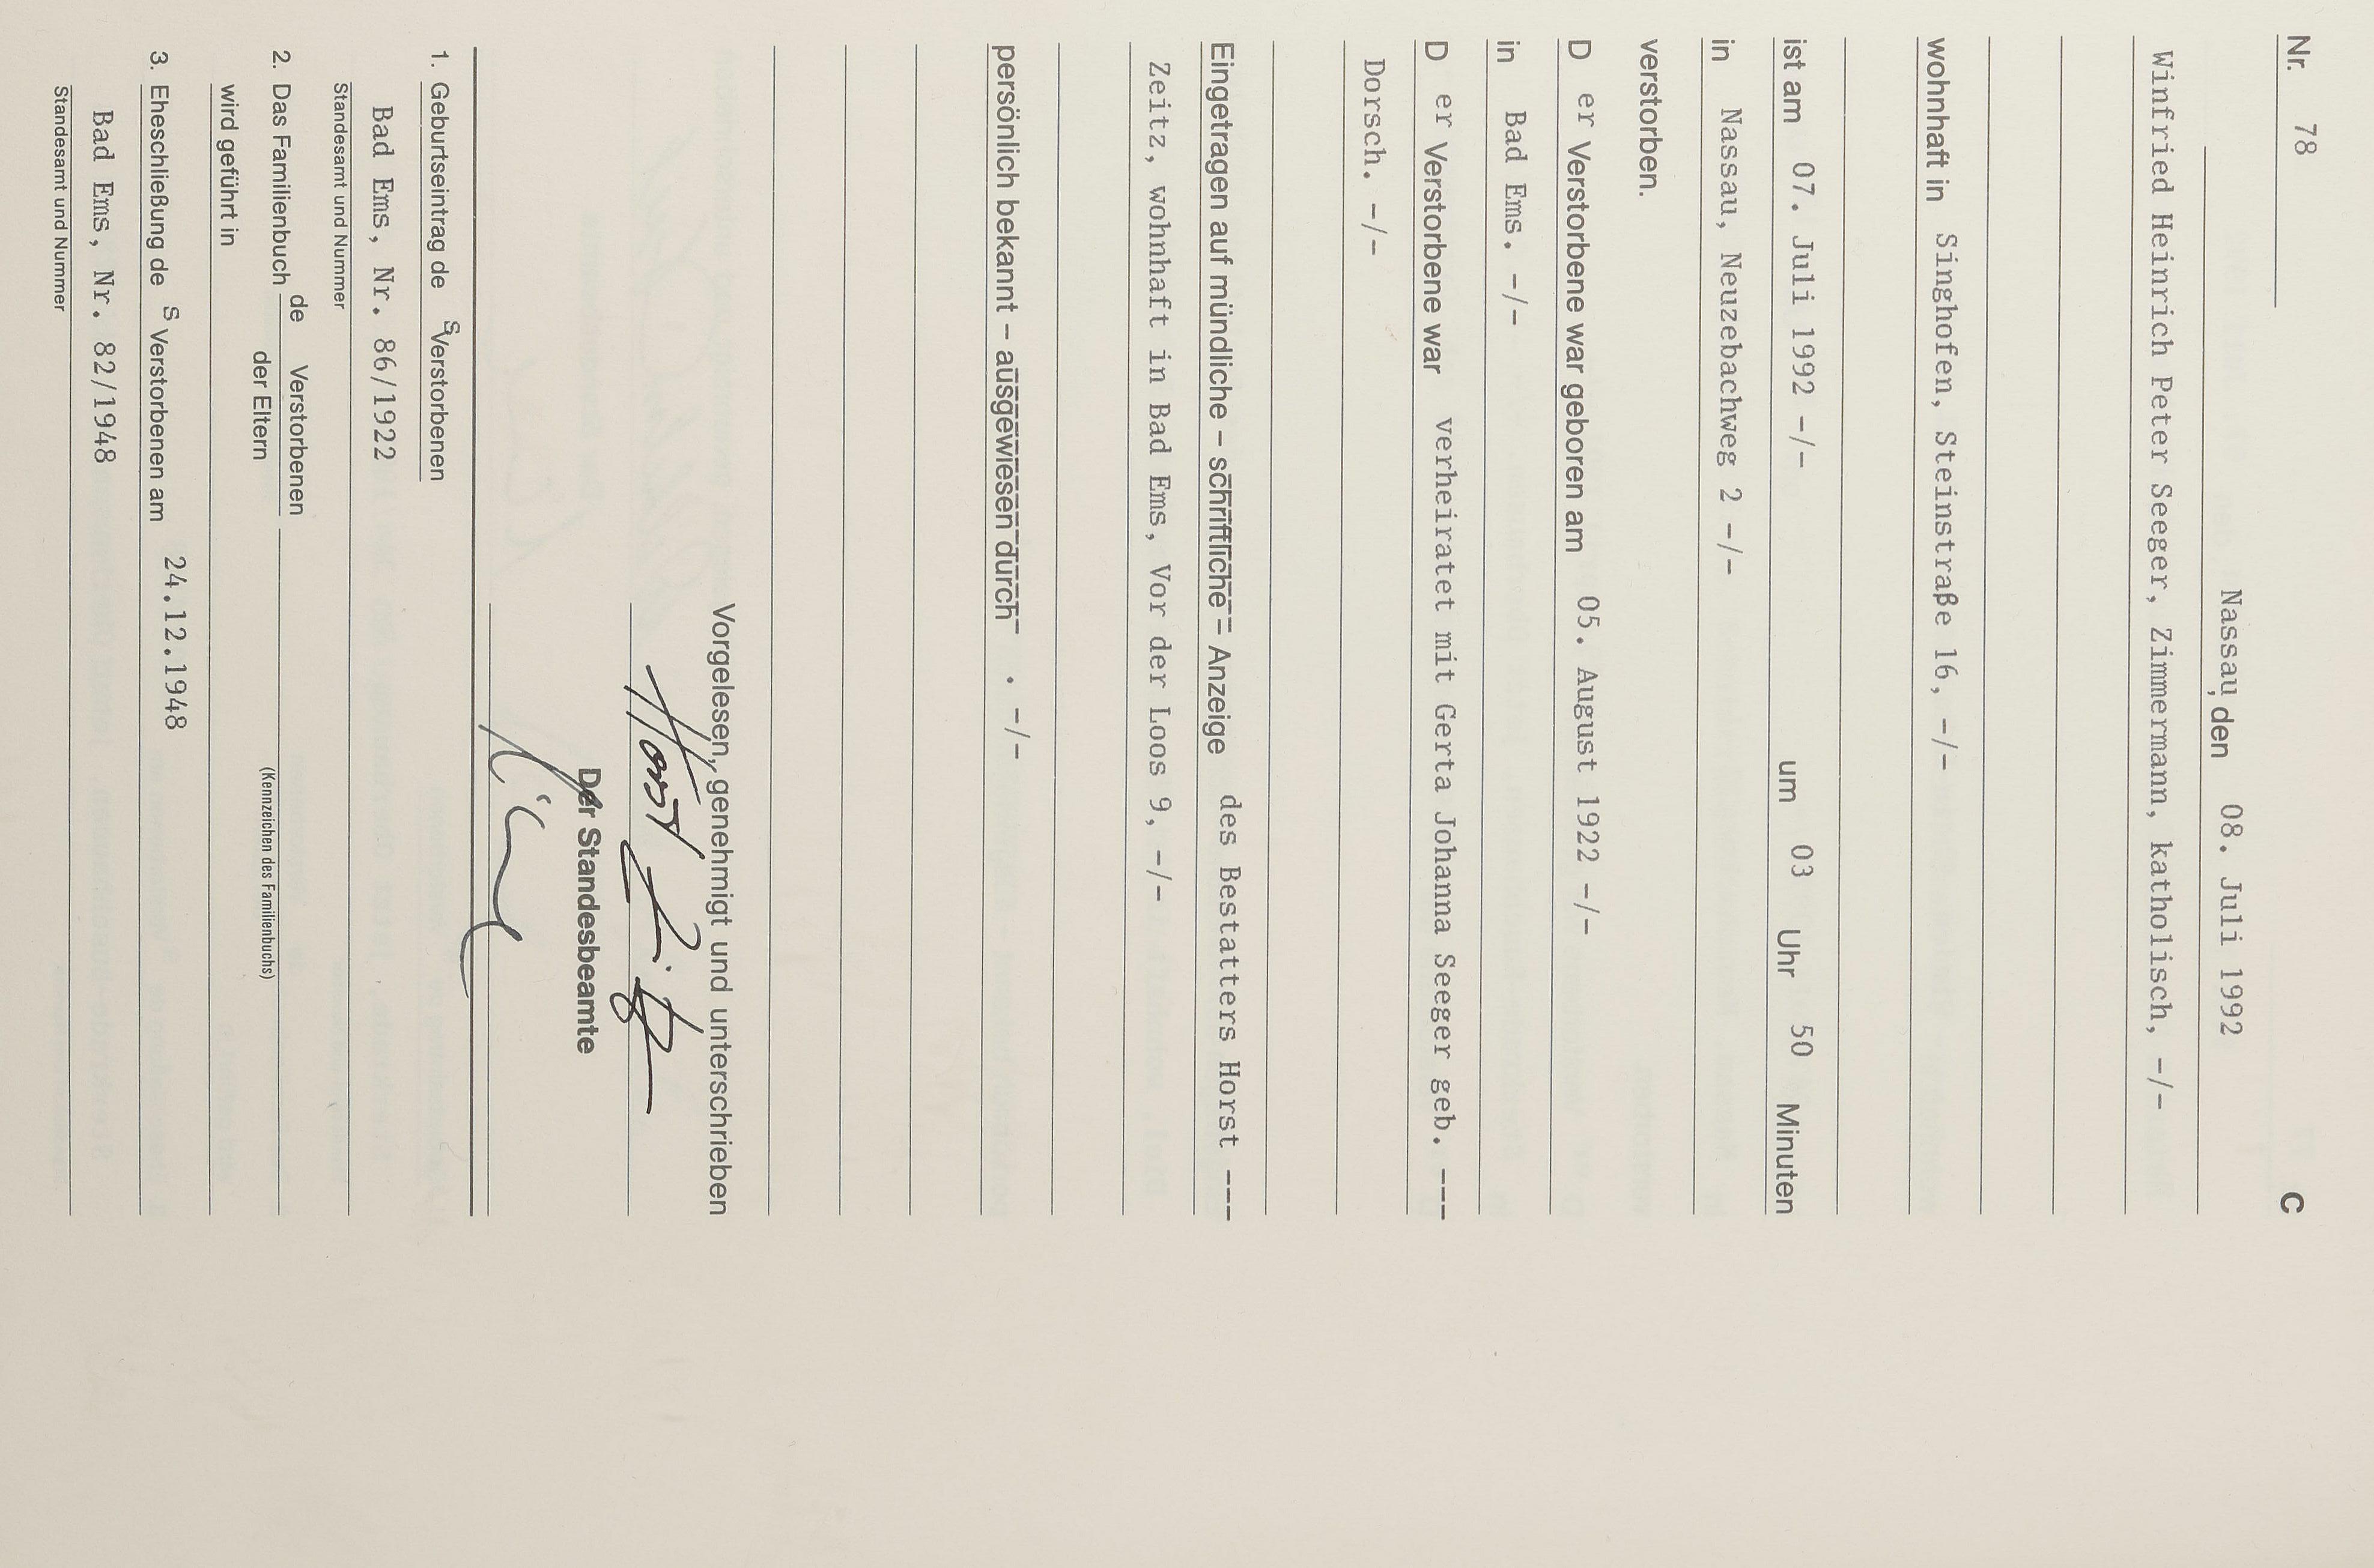 Nr. 78 C
Nassau, den 08. Juli 1992
Winfried Heinrich Peter Seeger, Zimmermann, katholisch, -/-
wohnhaft in Singhofen, Steinstraße 16, -/-
ist am 07. Juli 1992 -/- um 03 Uhr 50 Minuten
in Nassau, Neuzebachweg 2 -/-
verstorben.
D er Verstorbene war geboren am 05. August 1922 -/-
in Bad Ems. -/-
D er Verstorbene war verheiratet mit Gerta Johanna Seeger geb. ---
Dorsch. -/-
Eingetragen auf mündliche – schriftliche – Anzeige des Bestatters Horst ---
Zeitz, wohnhaft in Bad Ems, Vor der Loos 9, -/-
persönlich bekannt – ausgewiesen durch . -/-
Vorgelesen, genehmigt und unterschrieben
Horst Zeitz
Der Standesbeamte
1. Geburtseintrag de s Verstorbenen
Bad Ems, Nr. 86/1922
Standesamt und Nummer
2. Das Familienbuch de Verstorbenen
der Eltern
wird geführt in
(Kennzeichen des Familienbuchs)
3. Eheschließung de s Verstorbenen am 24.12.1948
Bad Ems, Nr. 82/1948
Standesamt und Nummer